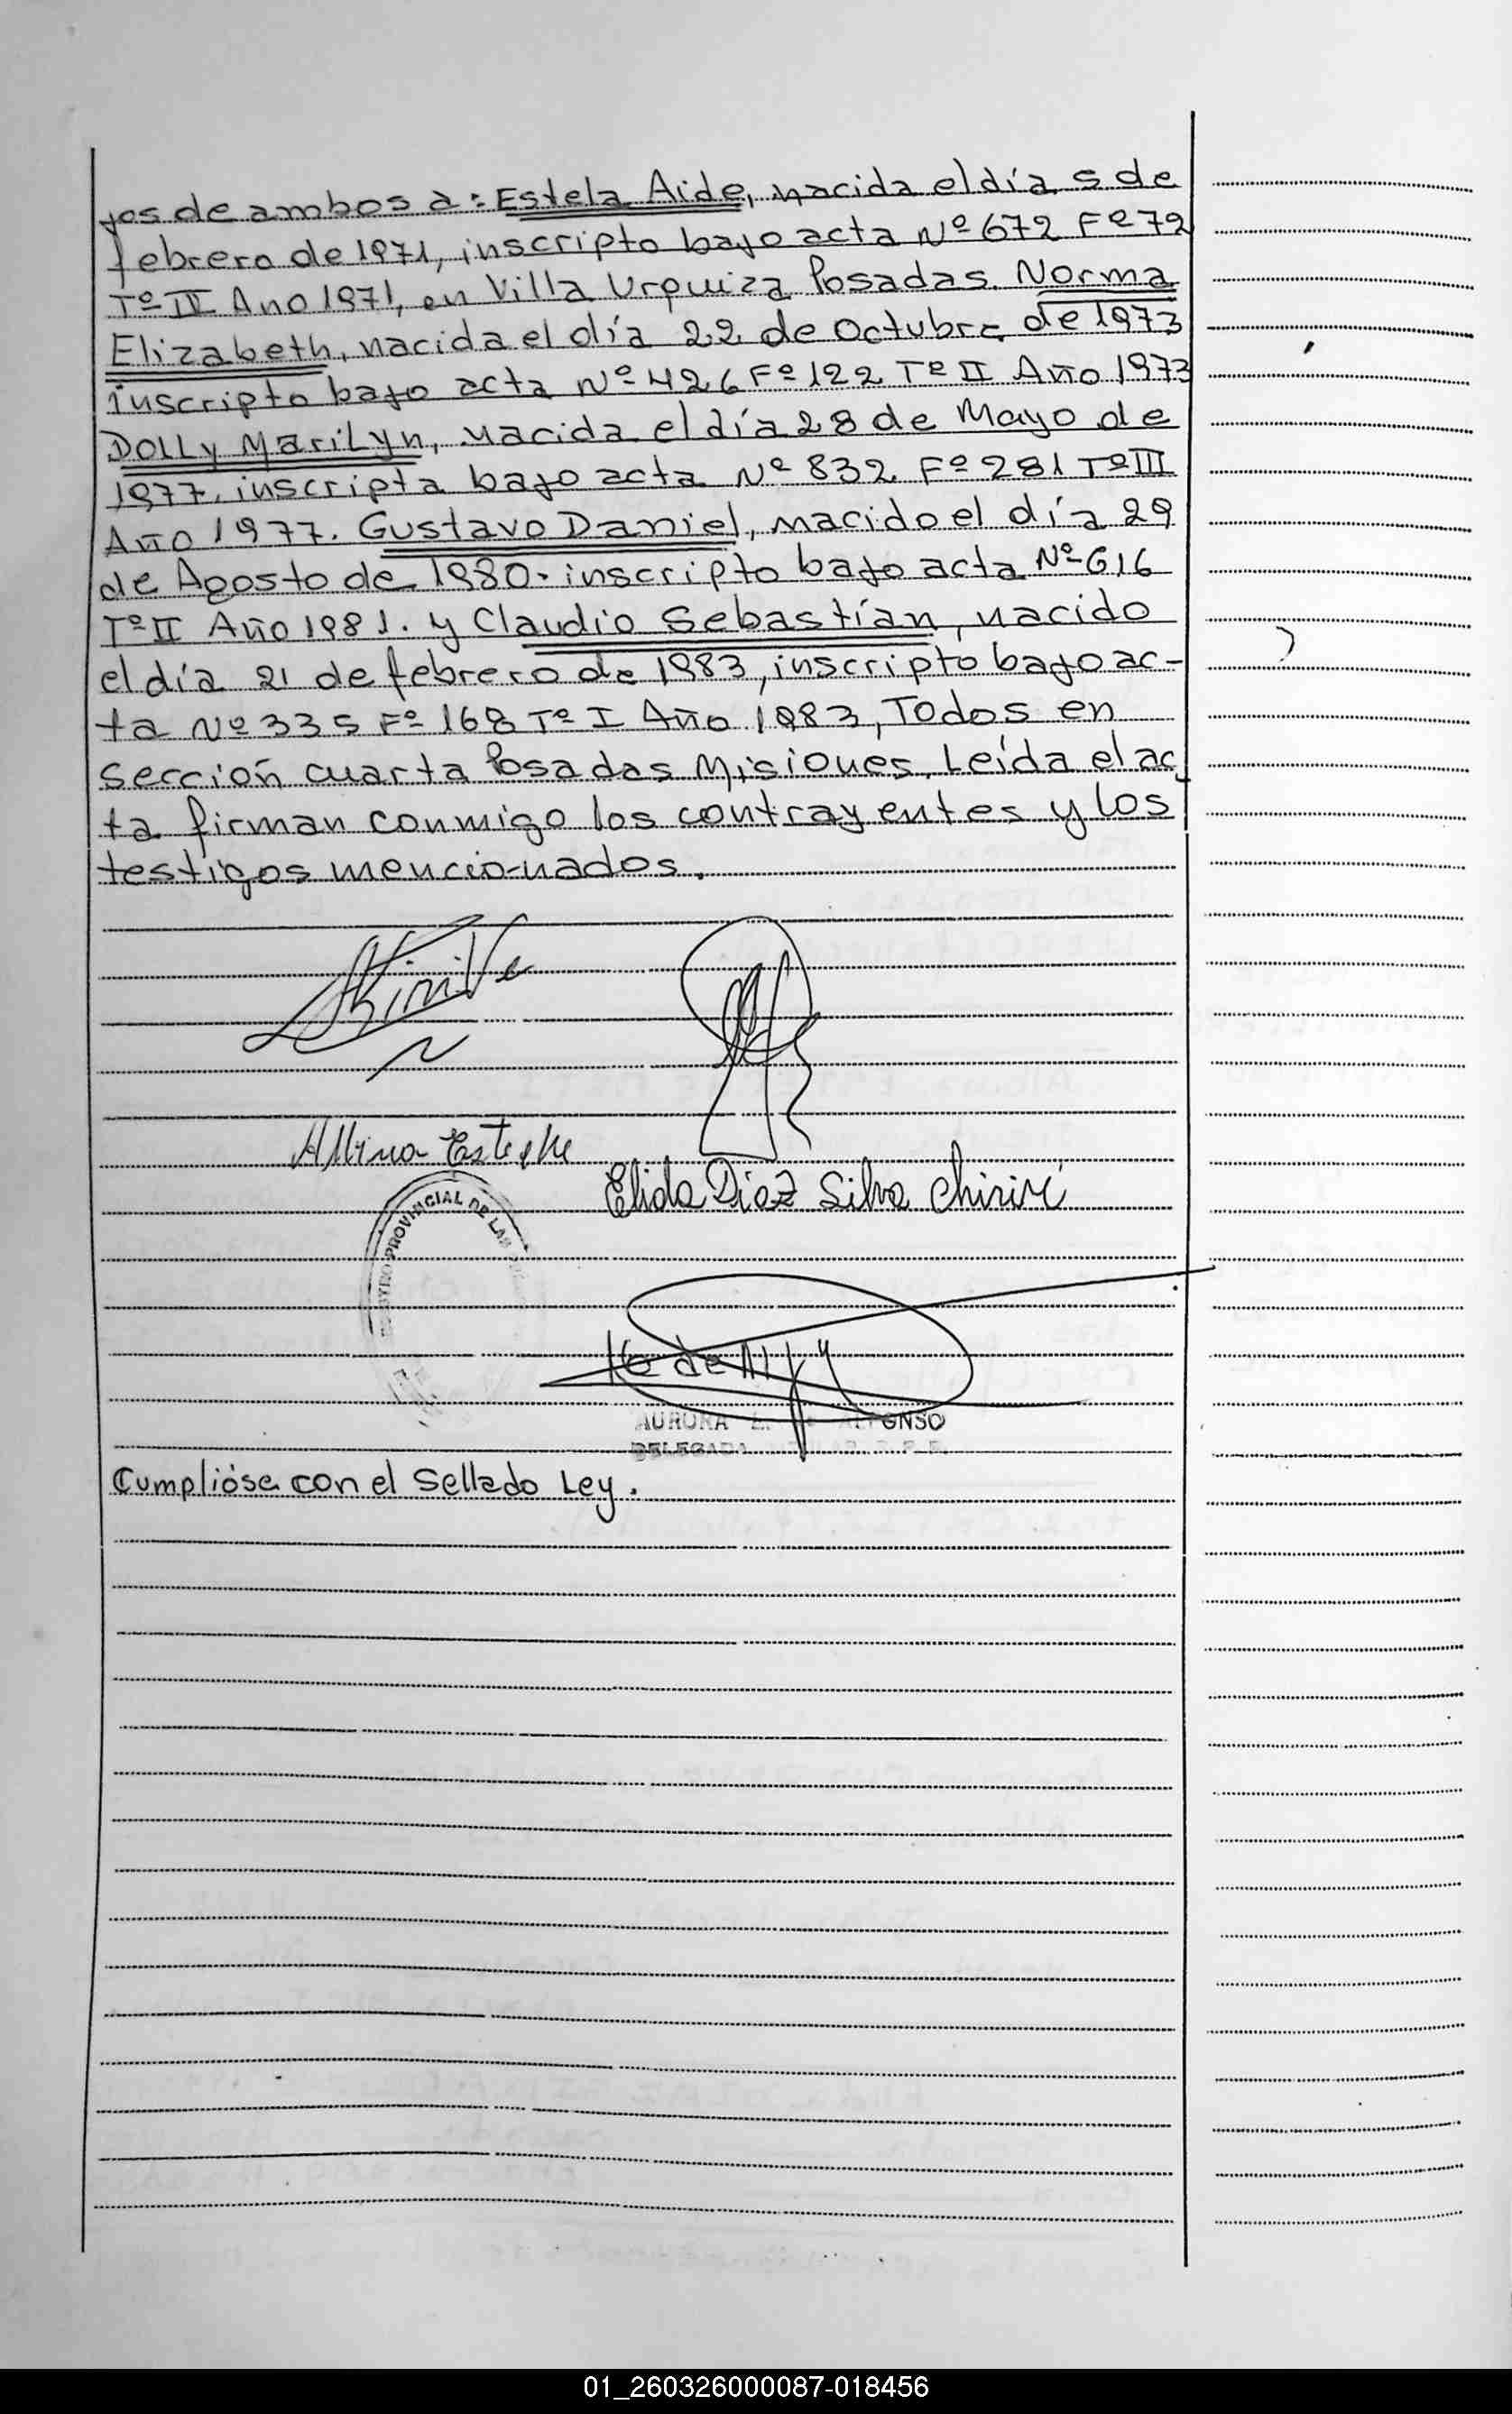 jos de ambos a: Estela Aide, nacida el día 5 de
febrero de 1971, inscripto bajo acta Nº 672 Fº 72
Tº II Año 1971, en Villa Urquiza Posadas. Norma
Elizabeth, nacida el día 22 de Octubre de 1973
inscripto bajo acta Nº 426 Fº 122 Tº II Año 1973
Dolly Marilyn, nacida el día 28 de Mayo de
1977, inscripta bajo acta Nº 832 Fº 281 Tº III
Año 1977. Gustavo Daniel, nacido el día 29
de Agosto de 1980. inscripto bajo acta Nº 616
Tº II Año 1981. y Claudio Sebastían, nacido
el día 21 de febrero de 1983, inscripto bajo ac-
ta Nº 335 Fº 168 Tº I Año 1983, Todos en
Sección cuarta Posadas Misiones. Leída el ac-
ta firman conmigo los contrayentes y los
testigos mencionados.
Albina
Elida Diaz Silva Chirivi
PROVINCIAL DE LAS
AURORA ALFONSO
DELEGADA
Cumplióse con el Sellado Ley.
01_260326000087-018456